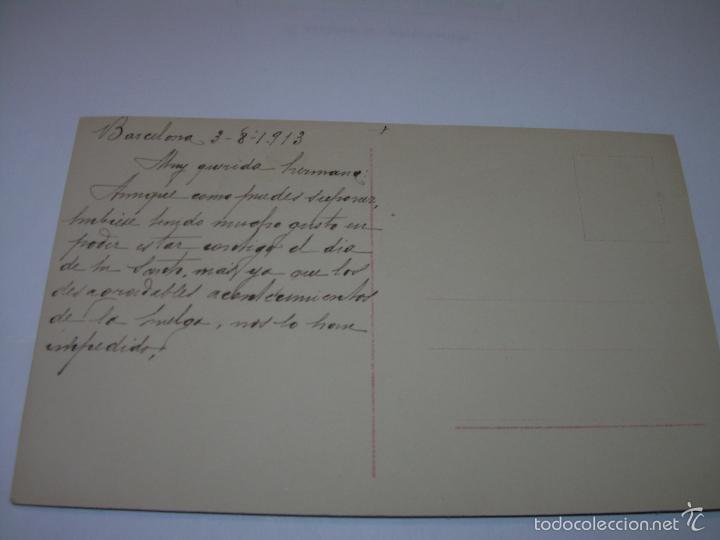 Barcelona 3-8-1913
Muy querida hermana:
Aunque como puedes suponer,
hubiese tenido mucho gusto en
poder estar contigo el dia
de tu Santo, mas ya que los
desagradables acontecimientos
de la huelga, nos lo han
impedido,
todocoleccion.net